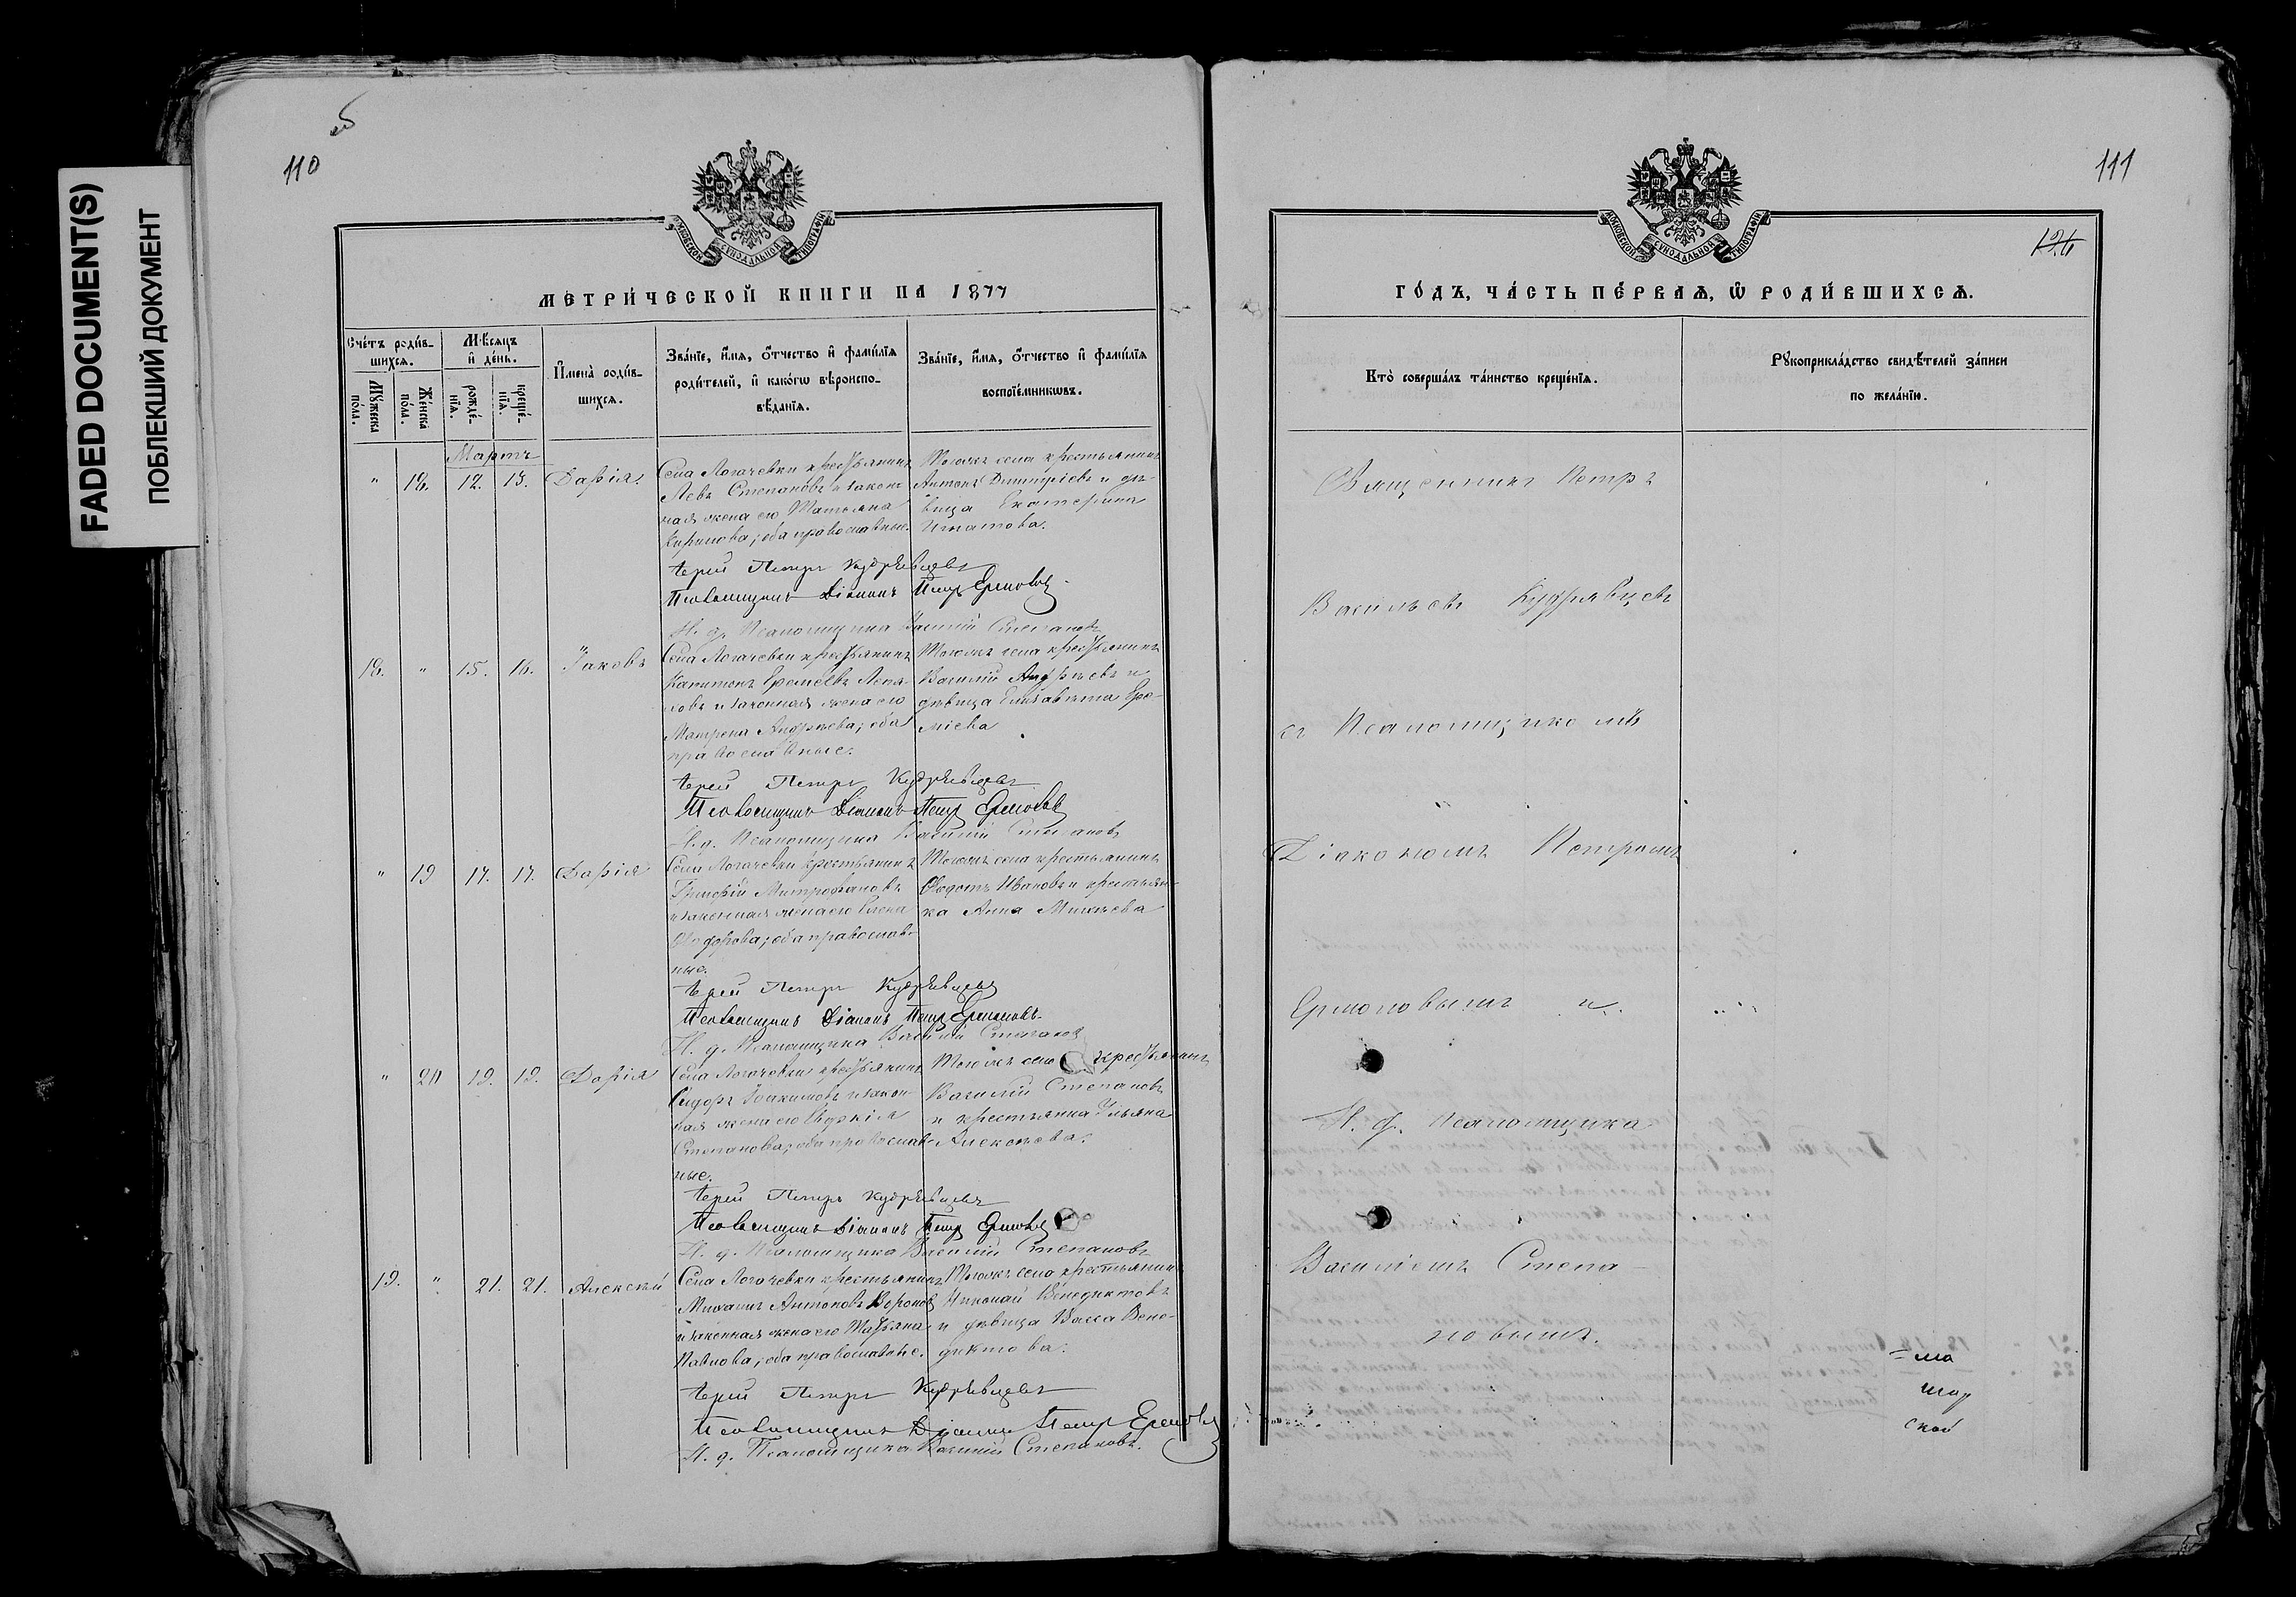 FADED DOCUMENT(S)
ПОБЛЕКШИЙ ДОКУМЕНТ
об
110
МОСКОВСКОЙ СѴНОДАЛЬНОЙ ТИПОГРАФІИ
МЕТРИ́ЧЕСКОЙ КНИГИ НА 1877
Сче́тъ роди́в-
шихся.
Му́жеска
по́ла.
Же́нска
по́ла.
Мѣ́сяцъ
и҆ де́нь.
рожде́-
нїѧ.
креще́-
нїѧ.
И҆мена̀ роди́в-
шихся.
Зва́нїе, и҆́мѧ, ѻ҆́тчество и҆ фами́лїѧ
роди́телей, и҆ како́гѡ вѣ̀роиспо-
вѣ́данїѧ.
Зва́нїе, и҆́мѧ, ѻ҆́тчество и҆ фами́лїѧ
воспрїе́мникѡвъ.
Мартъ
" 18. 12. 13. Дарія.
Села Логачевки крестьянинъ
Левъ Степановъ и закон-
ная жена его Татьяна
Кирилова; оба православные.
Тогожъ села крестьянинъ
Антонъ Димитріевъ и дѣ-
вица Екатерина
Игнатова.
Іерей Петръ Кудрявцевъ
Псаломщикъ Діаконъ Петръ Ермолов
И. д. Псаломщика Василій Степановъ
18. " 15. 16. Іаковъ
Села Логачевки крестьянинъ
Капитонъ Еремеевъ
и законная жена его
Матрена Андреева; оба
православные.
Тогожъ села крестьянинъ
Василій Андреевъ и
дѣвица Елизавета Ере-
міева
Іерей Петръ Кудрявцевъ
Псаломщикъ Діаконъ Петръ Ермолов
И. д. Псаломщика Василій Степановъ
" 19 17. 17. Дарія
Села Логачевки крестьянинъ
Григорій Митрофановъ
и законная жена его Елена
Ѳедорова; оба православ-
ные.
Тогожъ села крестьянинъ
Ѳедотъ Ивановъ и крестьян-
ка Анна Михеева
Іерей Петръ Кудрявцевъ
Псаломщикъ Діаконъ Петръ Ермоловъ
И. д. Псаломщика Василій Степанов
" 20 19. 19. Дарія
Села Логачевки крестьянинъ
Сидоръ Іоакимовъ и закон-
ная жена его Евдокія
Степанова; оба православ-
ные.
Тогожъ села крестьянинъ
Василій Степановъ
и крестьянка Ульяна
Алексеева.
Іерей Петръ Кудрявцевъ
Псаломщикъ Діаконъ Петръ Ермолов
И. д. Псаломщика Василій Степановъ
19. " 21. 21. Алексѣй
Села Логачевки крестьянинъ
Михаилъ Антоновъ Воронов
и законная жена его Татьяна
Павлова; оба православные.
Тогожъ села крестьянинъ
Николай Венедиктовъ
и дѣвица Васса Вене-
диктова.
Іерей Петръ Кудрявцевъ
Псаломщикъ Діаконъ Петръ Ермолов
И. д. Псаломщика Василій Степановъ.
111
МОСКОВСКОЙ СѴНОДАЛЬНОЙ ТИПОГРАФІИ
ГО́ДЪ, ЧА́СТЬ ПЕ́РВАѦ, Ѡ҆ РОДИ́ВШИХСѦ.
Кто̀ соверша́лъ та́инство креще́нїѧ.
Рꙋкоприкла́дство свидѣ́телей за́писи
по жела́нїю.
Священникъ Петръ
Васильевъ Кудрявцевъ
съ Псаломщикомъ
Діакономъ Петромъ
Ермоловымъ и
И. д. Псаломщика
Василіемъ Степа-
новымъ.